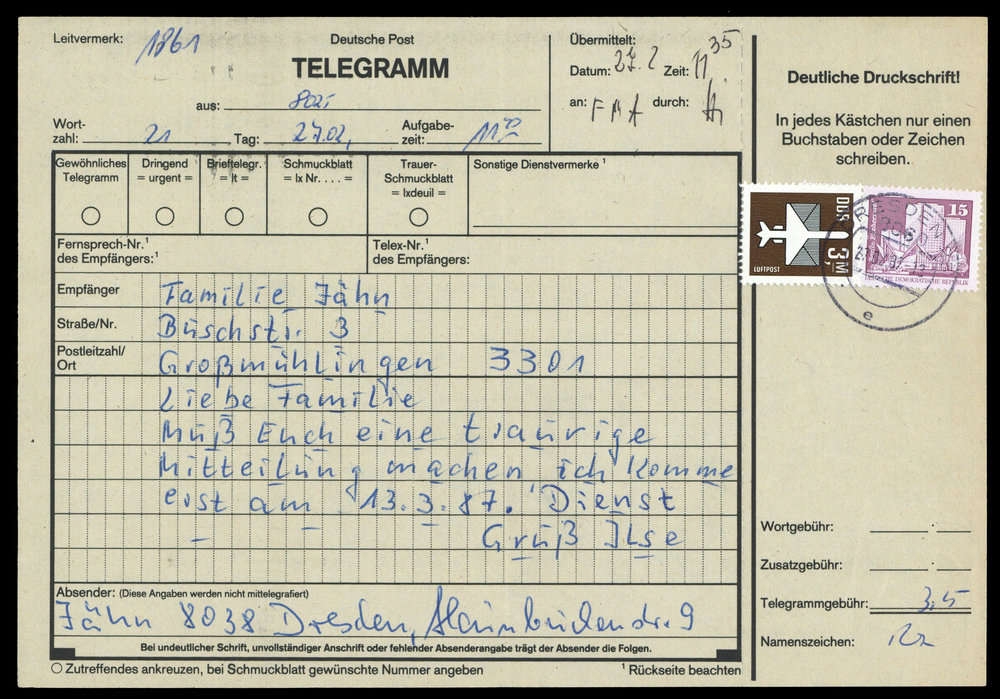 Leitvermerk: 1861
Deutsche Post
TELEGRAMM
aus: 8021
Wort-
zahl: 21 Tag: 27.02. Aufgabe-
zeit: 11 20
Übermittelt:
Datum: 27.2 Zeit: 11 35
an: durch:
Deutliche Druckschrift!
In jedes Kästchen nur einen
Buchstaben oder Zeichen
schreiben.
Gewöhnliches
Telegramm
Dringend
= urgent =
Brieftelegr.
= lt =
Schmuckblatt
= lx Nr. . . . . =
Trauer-
Schmuckblatt
= lxdeuil =
Sonstige Dienstvermerke ¹
Fernsprech-Nr.¹
des Empfängers:¹
Telex-Nr.¹
des Empfängers:
DDR
3,- M
LUFTPOST
15
DEMOKRATISCHE REPUBLIK
DRESDEN
e
Empfänger Familie Jähn
Straße/Nr. Buschstr. 3
Postleitzahl/
Ort Großmühlingen 3301
Liebe Familie
Muß Euch eine traurige
Mitteilung machen ich komme
erst am 13.3.87. Dienst
Gruß Ilse
Absender: (Diese Angaben werden nicht mittelegrafiert)
Jähn 8038 Dresden, 9
Bei undeutlicher Schrift, unvollständiger Anschrift oder fehlender Absenderangabe trägt der Absender die Folgen.
Zutreffendes ankreuzen, bei Schmuckblatt gewünschte Nummer angeben
¹ Rückseite beachten
Wortgebühr:
Zusatzgebühr:
Telegrammgebühr: 3,15
Namenszeichen: